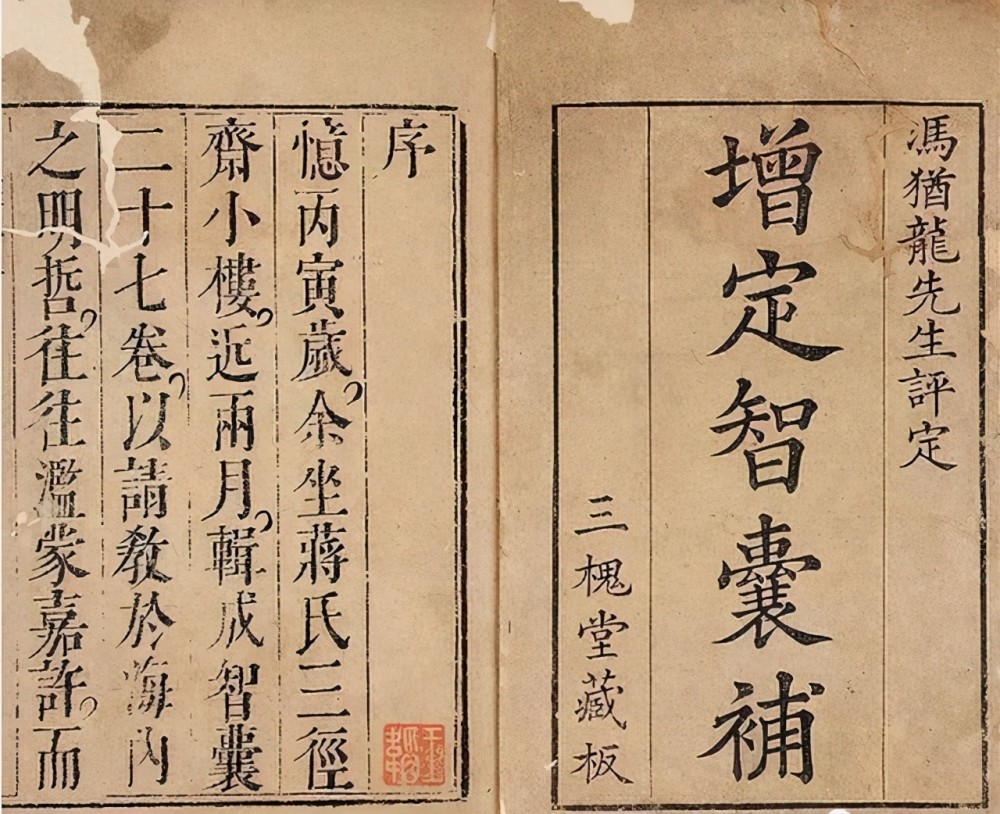 馮猶龍先生評定
增定智囊補
三槐堂藏板
序
憶丙寅歲余坐蔣氏三徑
齋小樓近兩月輯成智囊
二十七卷以請教於海內
之明哲往往濫蒙嘉許而